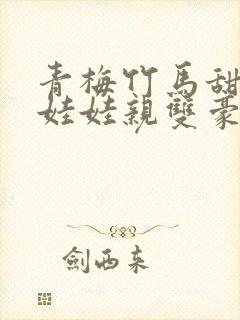 青梅竹馬甜
娃娃親雙豪
劍西來